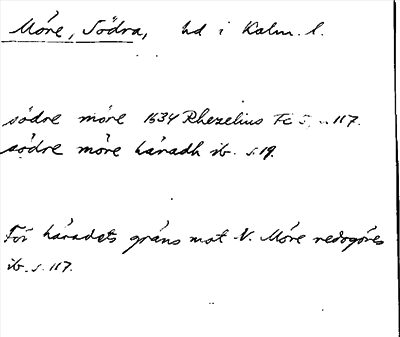 Möre, Södra, hd i Kalm. l.
södre möre 1634 Rhezelius Fc 5, s. 117.
södre möre häradh ib. s. 19.
För häradets gräns mot N. Möre redogöres
ib. s. 117.